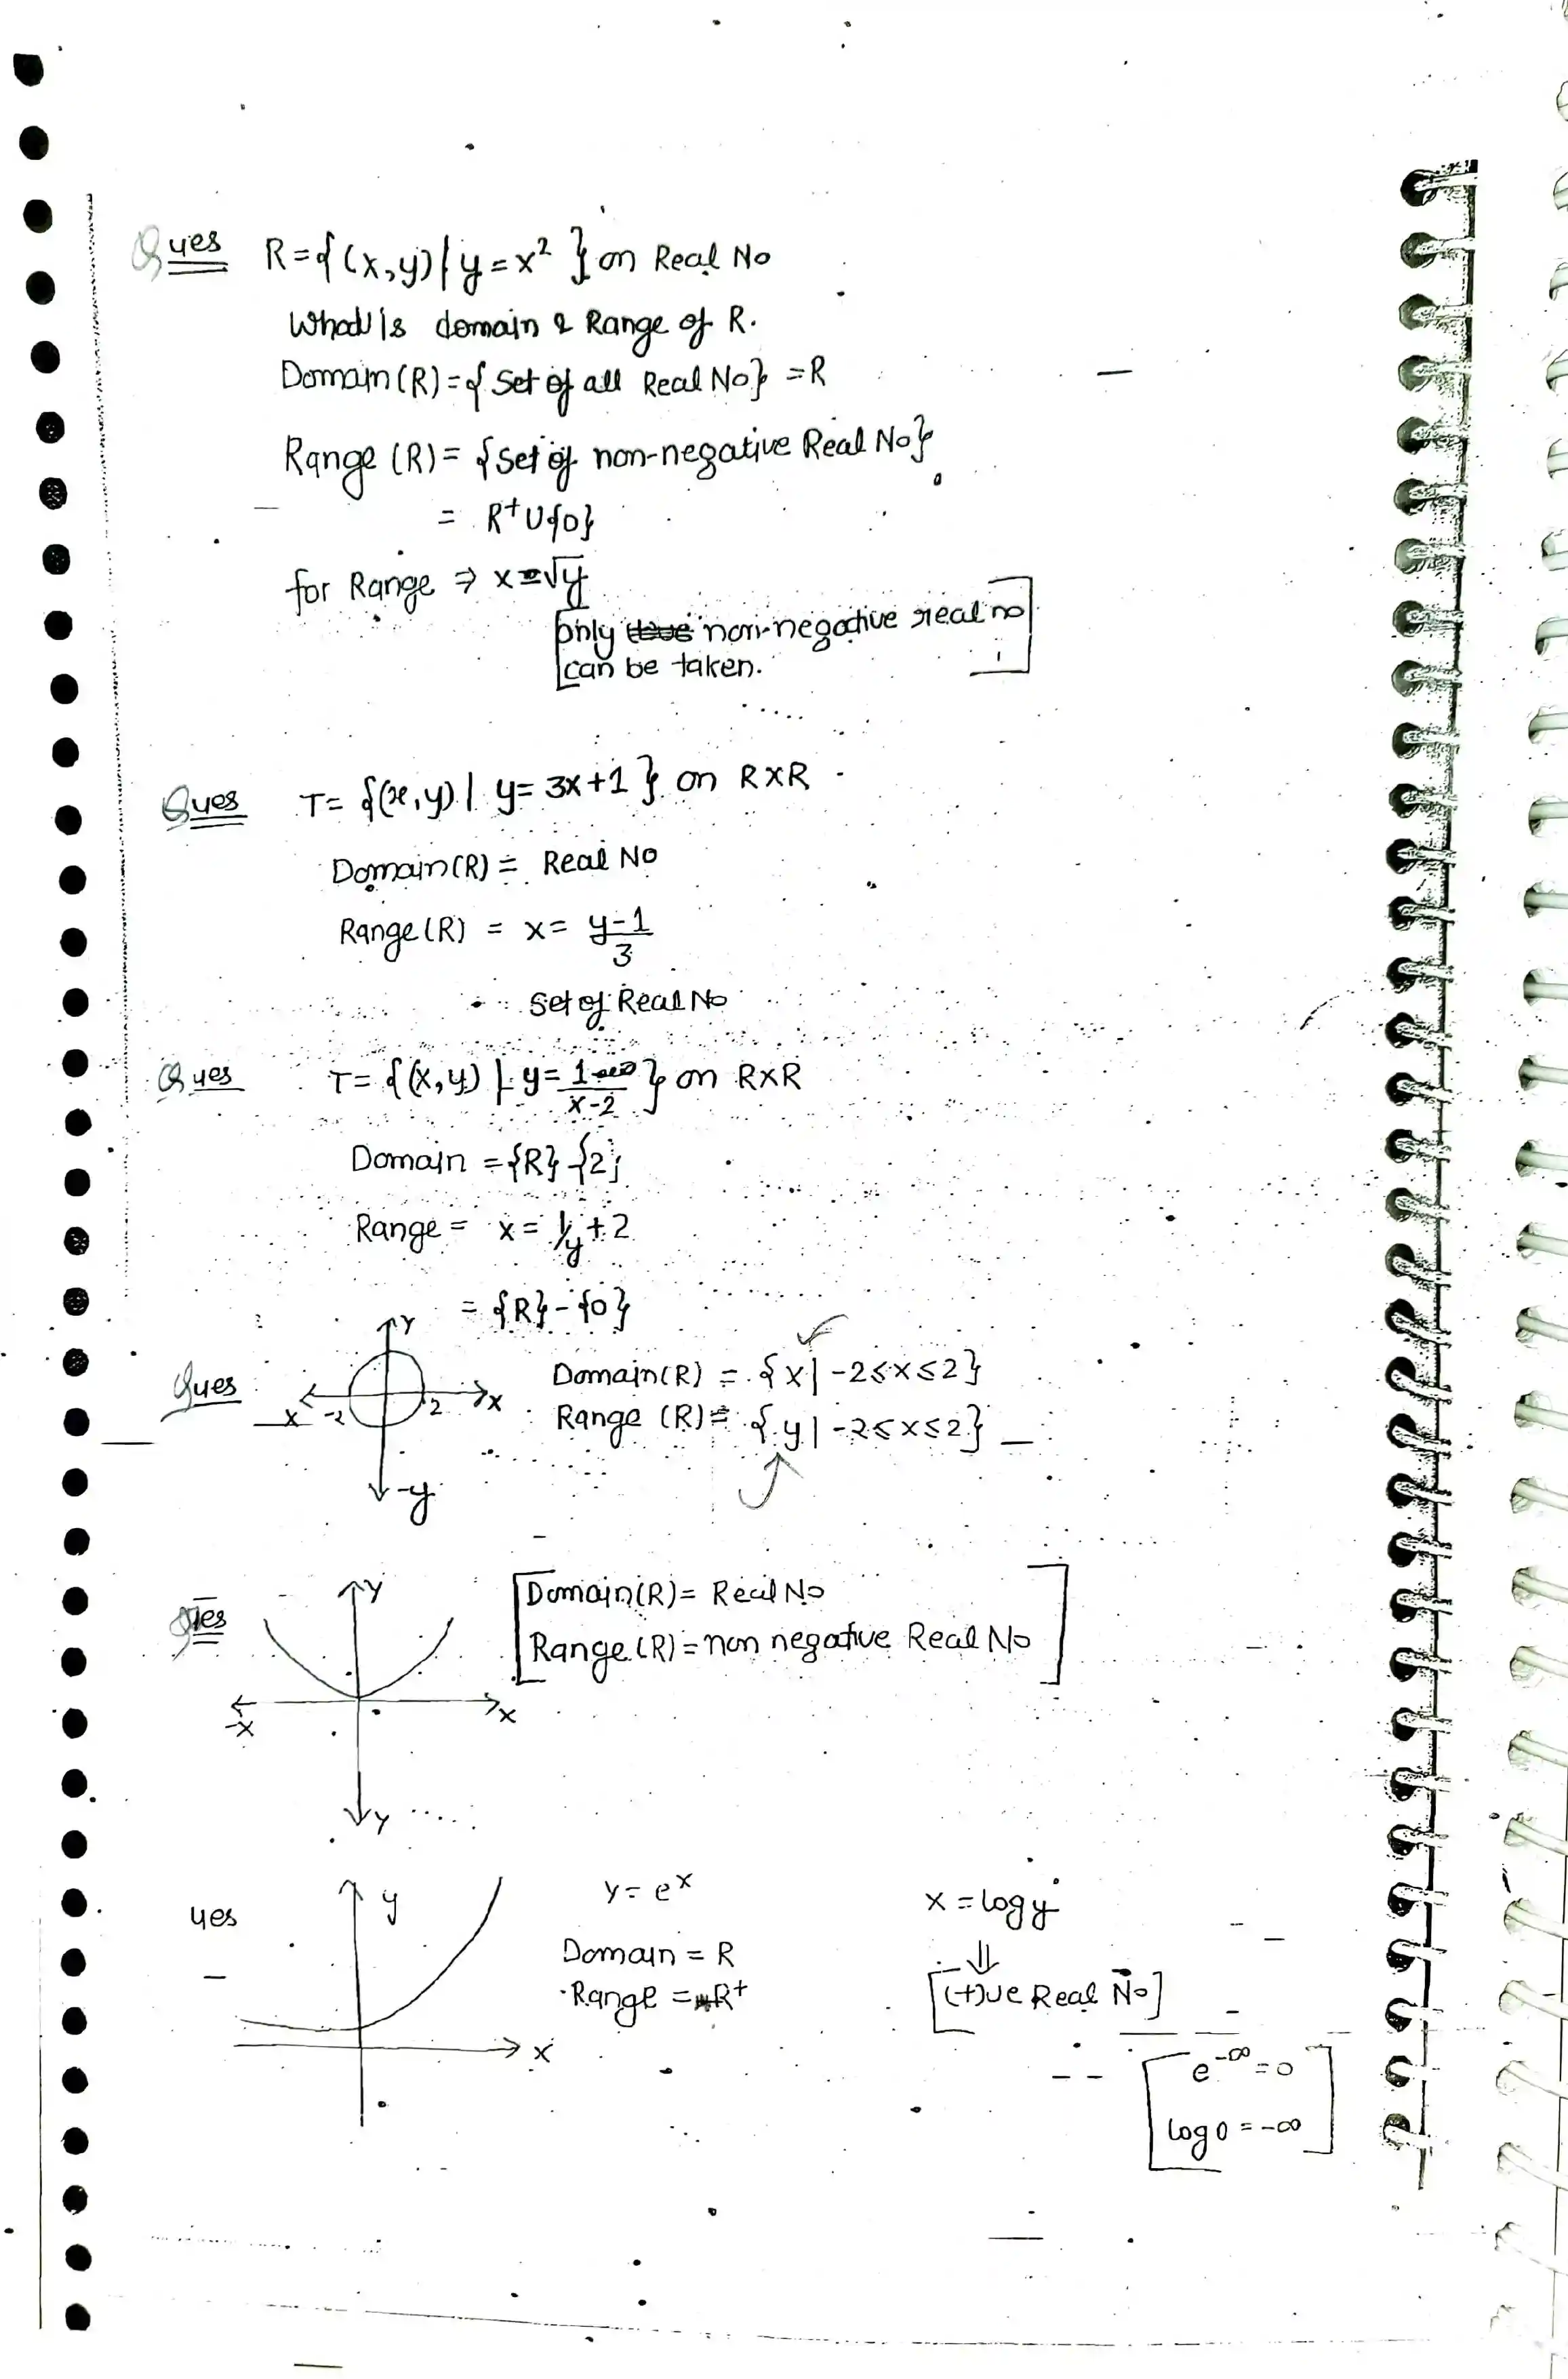 Ques R={(x,y)|y=x²} on Real No
What is domain & Range of R.
Domain(R)={Set of all Real No} =R
Range (R)= {Set of non-negative Real No}
= R⁺U{0}
for Range ⇒ x=√y
only non-negative real no
can be taken.
Ques T= {(x,y)| y= 3x+1} on RXR
Domain(R) = Real No
Range(R) = x= y-1/3
Set of Real No
Ques T= {(x,y) | y= 1/x-2} on RXR
Domain ={R}-{2}
Range = x= 1/y+2
= {R}-{0}
Y
Ques -x -2 2 x Domain(R) = {x|-2≤x≤2}
Range (R)= {y|-2≤x≤2}
-y
Ques Y Domain(R)= Real No
Range(R)=non negative Real No
-x x
y
ues y y= eˣ x=log y
Domain = R ⇓
Range = R⁺ [(+)ve Real No]
x
e^-∞=0
log0=-∞